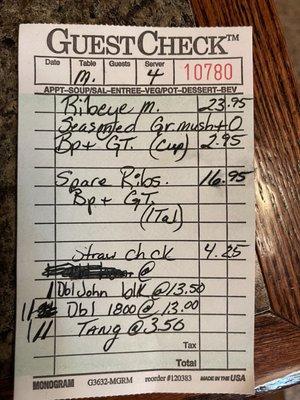 GUESTCHECK™
Date Table Guests Server
M. 4 10780
APPT-SOUP/SAL-ENTREE-VEG/POT-DESSERT-BEV
Ribeye m. 23.95
Seasoned Gr. mush + O
Bp + GT. (cup) 2.95
Spare Ribs. 16.95
Bp + GT.
(ITal)
Straw chck 4.25
@
1 Dbl John blk @ 13.50
Dbl 1800 @ 13.00
11 TANG @ 3.50
Tax
Total
MONOGRAM G3632-MGRM reorder #120383 MADE IN THE USA